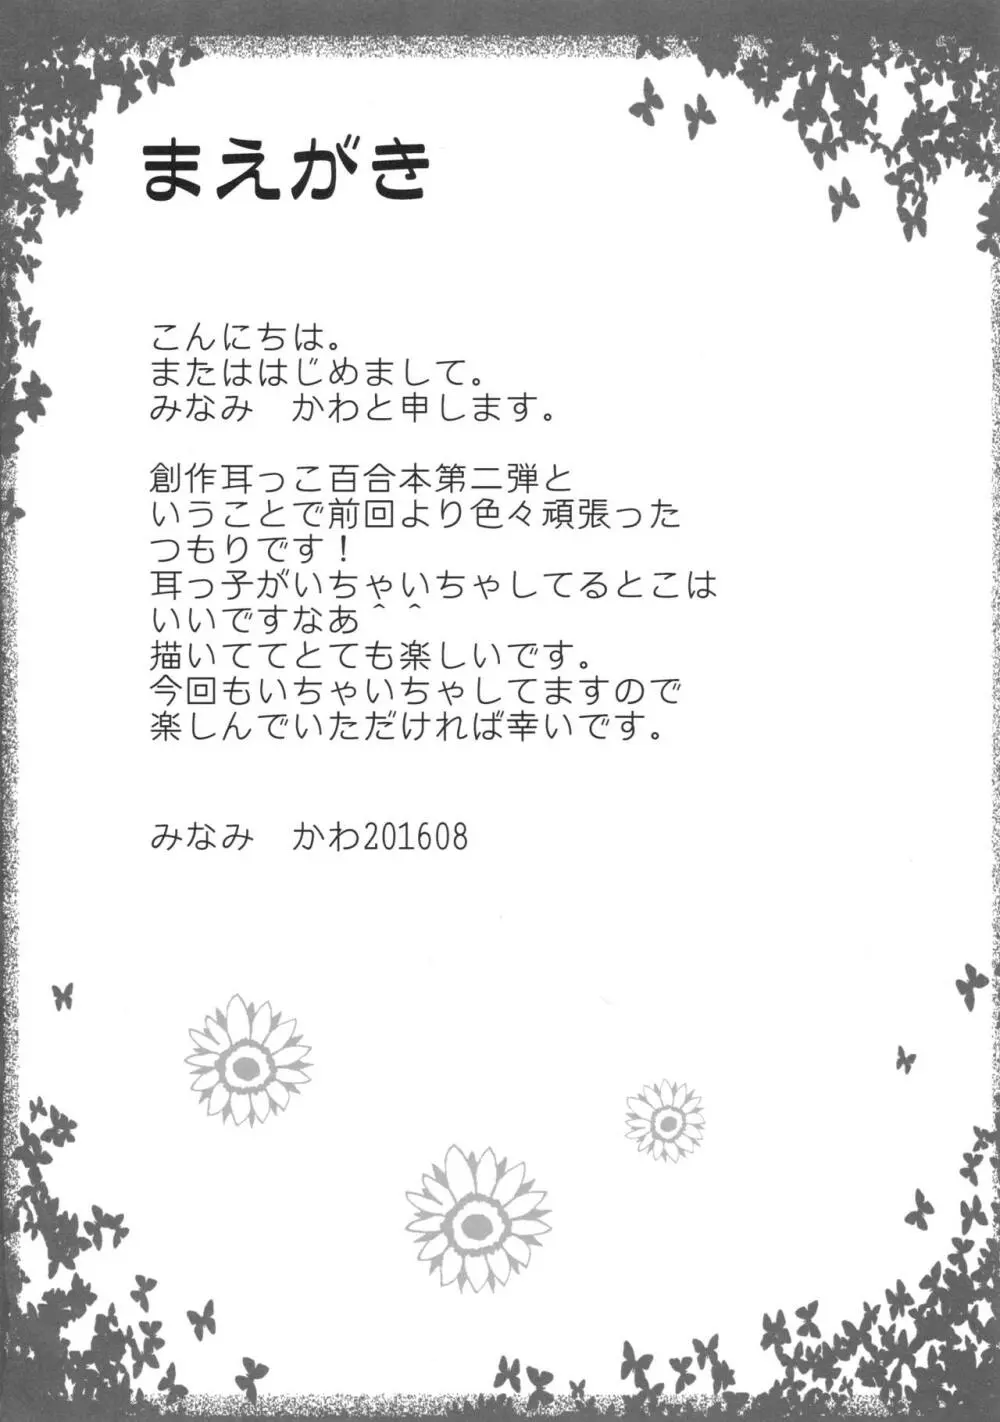 まえがき
こんにちは。
またははじめまして。
みなみ　かわと申します。
創作耳っこ百合本第二弾と
いうことで前回より色々頑張った
つもりです！
耳っ子がいちゃいちゃしてるとこは
いいですなあ＾＾
描いててとても楽しいです。
今回もいちゃいちゃしてますので
楽しんでいただければ幸いです。
みなみ　かわ201608